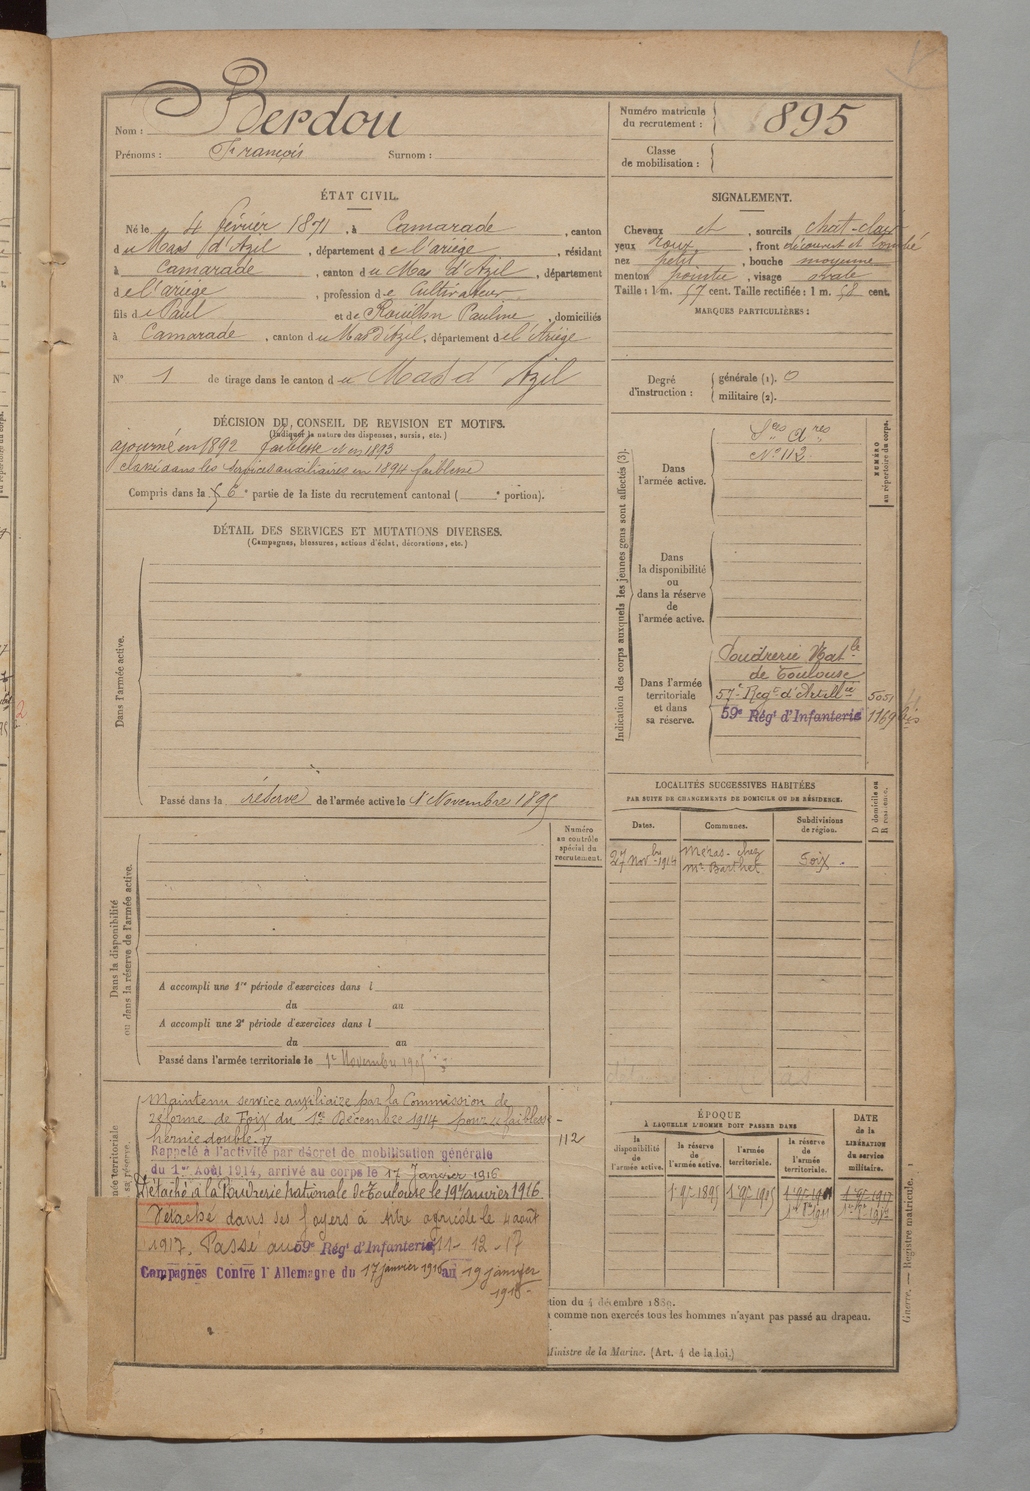 Nom : Berdou
Prénoms : François Surnom :
Numéro matricule du recrutement : 895
Classe de mobilisation :
ÉTAT CIVIL.
Né le 4 février 1871, à Camarade, canton
du Mas d'Azil, département de l'ariège, résidant
à Camarade, canton du Mas d'Azil, département
de l'ariège, profession de Cultivateur
fils de Paul et de Rouillon Pauline, domiciliés
à Camarade, canton du Mas d'Azil, département de l'Ariège
N° 1 de tirage dans le canton du Mas d'Azil
SIGNALEMENT.
Cheveux et, sourcils chat-clair
yeux roux, front découvert et bombé
nez petit, bouche moyenne
menton pointu, visage ovale
Taille : 1 m. 57 cent. Taille rectifiée : 1 m. 58 cent.
MARQUES PARTICULIÈRES :
Degré d'instruction : générale (1). 0
militaire (2).
DÉCISION DU CONSEIL DE REVISION ET MOTIFS.
(Indiquer la nature des dispenses, sursis, etc.)
ajourné en 1892 faiblesse N en 1893
classé dans les services auxiliaires en 1894 faiblesse
Compris dans la 6e partie de la liste du recrutement cantonal ( e portion).
DÉTAIL DES SERVICES ET MUTATIONS DIVERSES.
(Campagnes, blessures, actions d'éclat, décorations, etc.)
Dans l'armée active.
Passé dans la réserve de l'armée active le 1r Novembre 1895
Indication des corps auxquels les jeunes gens sont affectés (3).
NUMÉRO au répertoire du corps.
Dans l'armée active.
Sces Ares
N° 112
Dans
la disponibilité
ou
dans la réserve
de
l'armée active.
Dans l'armée
territoriale
et dans
sa réserve.
Poudrerie Natle
de Toulouse
57e Regt d'Artillie 5051
59e Régt d'Infanterie 1169 bis
LOCALITÉS SUCCESSIVES HABITÉES
PAR SUITE DE CHANGEMENTS DE DOMICILE OU DE RÉSIDENCE.
Dates. Communes. Subdivisions de région. D domicile ou R résidence.
27 Novbre 1914 Méras - chez Mr Barthet Foix.
Numéro au contrôle spécial du recrutement.
Dans la disponibilité
ou dans la réserve de l'armée active.
A accompli une 1re période d'exercices dans l
du au
A accompli une 2e période d'exercices dans l
du au
Passé dans l'armée territoriale le 1r Novembre 1905
Maintenu service auxiliaire par la Commission de
réforme de Foix du 1er Décembre 1914 pour faiblesse
hernie double
112
Rappelé à l'activité par décret de mobilisation générale
du 1er Août 1914, arrivé au corps le 17 Janvier 1916
Détaché à la Poudrerie Nationale de Toulouse le 19 Janvier 1916
Détaché dans ses foyers à titre agricole le 4 août
1917. Passé au 59e Régt d'Infanterie 11-12-17
Campagnes Contre l'Allemagne du 17 janvier 1916 au 19 janvier
1918-
ÉPOQUE
À LAQUELLE L'HOMME DOIT PASSER DANS
la disponibilité de l'armée active.
la réserve de l'armée active.
l'armée territoriale.
la réserve de l'armée territoriale.
DATE de la LIBÉRATION du service militaire.
1r 9bre 1895 1r 9bre 1905
tion du 4 décembre 1889.
comme non exercés tous les hommes n'ayant pas passé au drapeau.
Ministre de la Marine. (Art. 4 de la loi.)
Guerre. — Registre matricule. 1